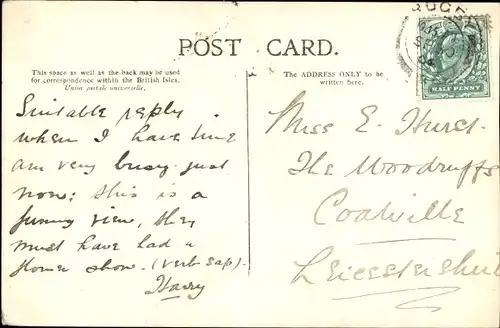 POST CARD.
This space as well as the back may be used
for correspondence within the British Isles.
Union postale universelle.
The ADDRESS ONLY to be
written here.
HALF PENNY
Suitable reply
when I have time
am very busy just
now: this is a
funny view, they
must have had a
flower show. (verb sap).
Harry
Miss E. Hurst.
The Woodruffs
Coalville
Leicestershire